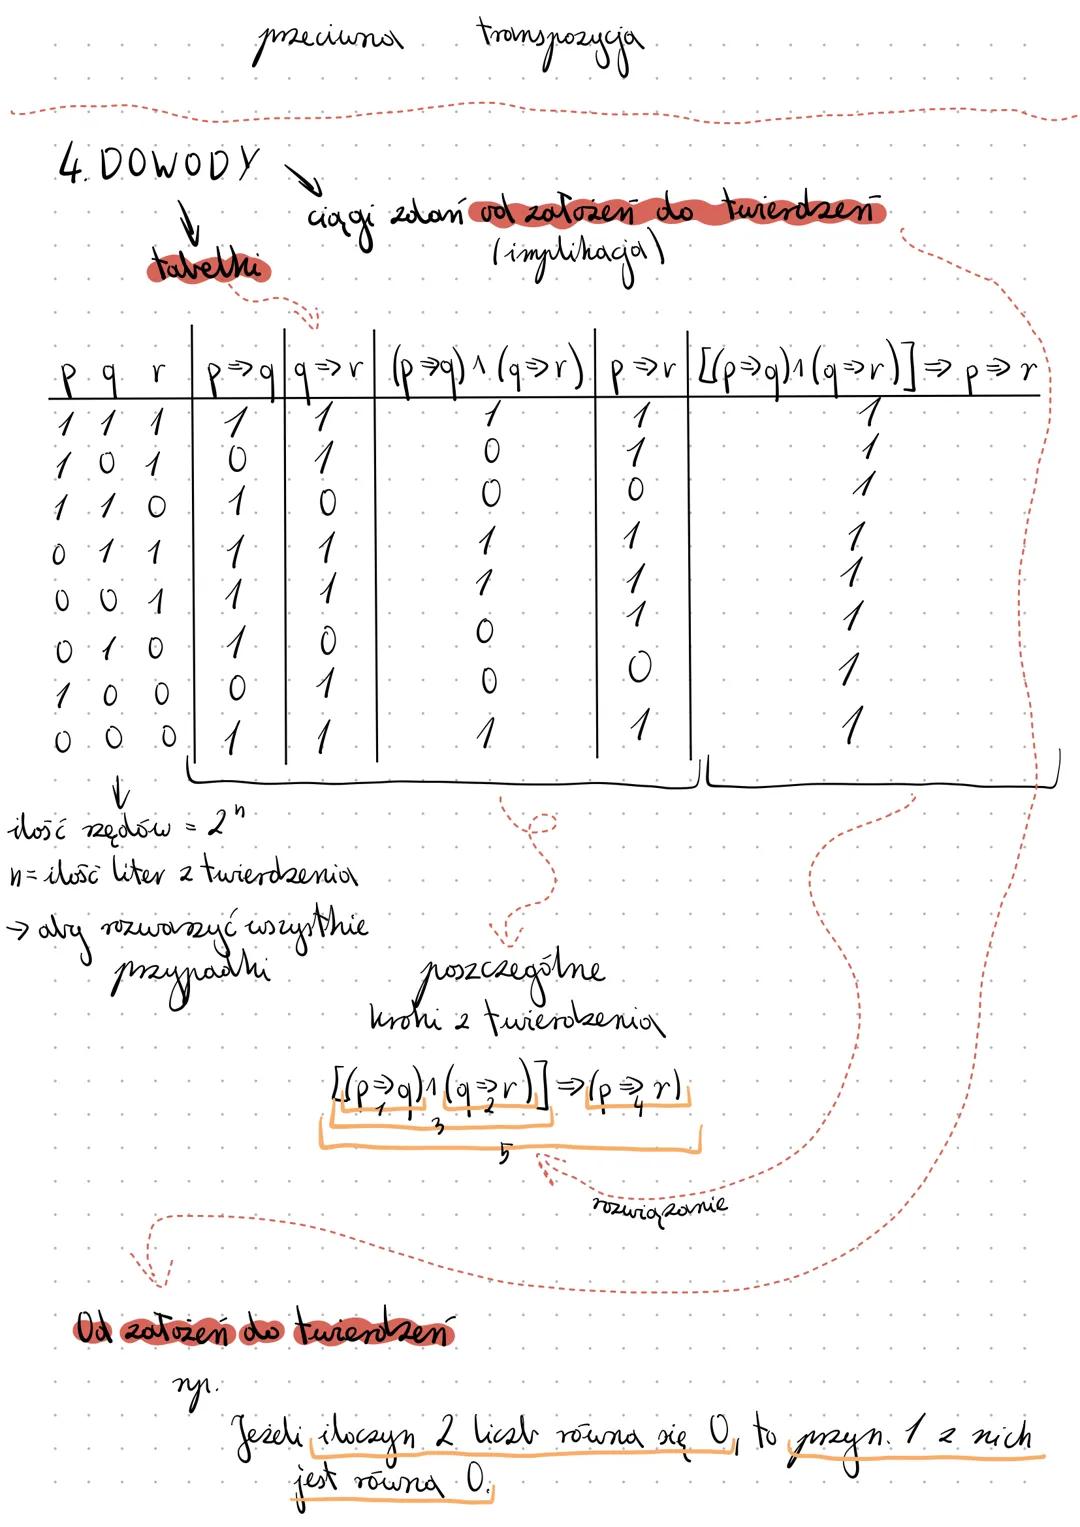 przeciwna transpozycja
4. DOWODY
ciągi zdań od założeń do twierdzeń
(implikacja)
tabelki
p q r p⇒q q⇒r (p⇒q)∧(q⇒r) p⇒r [(p⇒q)∧(q⇒r)]⇒p⇒r
1 1 1 1 1 1 1 1
1 0 1 0 1 0 1 1
1 1 0 1 0 0 0 1
0 1 1 1 1 1 1 1
0 0 1 1 1 1 1 1
0 1 0 1 0 0 1 1
1 0 0 0 1 0 0 1
0 0 0 1 1 1 1 1
ilość rzędów = 2ⁿ
n = ilość liter z twierdzenia
→ aby rozważyć wszystkie
przypadki
poszczególne
kroki z twierdzenia
[(p⇒q)∧(q⇒r)]⇒(p⇒r)
1 2 4
3
5
rozwiązanie
Od założeń do twierdzeń
np.
Jeżeli iloczyn 2 liczb równa się 0, to przyn. 1 z nich
jest równa 0.